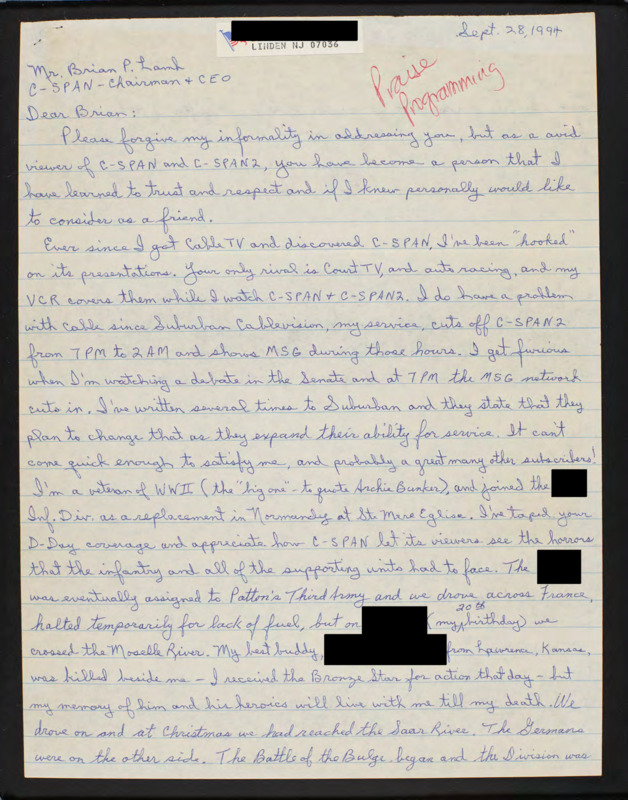 LINDEN NJ 07036
Sept. 28, 1994
Mr. Brian P. Lamb
C-SPAN - Chairman & CEO
Praise
Programming
Dear Brian:
Please forgive my informality in addressing you, but as a avid
viewer of C-SPAN and C-SPAN2, you have become a person that I
have learned to trust and respect and if I knew personally would like
to consider as a friend.
Ever since I got Cable TV and discovered C-SPAN, I've been "hooked"
on its presentations. Your only rival is Court TV, and auto racing, and my
VCR covers them while I watch C-SPAN & C-SPAN2. I do have a problem
with cable since Suburban Cablevision, my service, cuts off C-SPAN 2
from 7 PM to 2 AM and shows MSG during those hours. I get furious
when I'm watching a debate in the Senate and at 7PM the MSG network
cuts in. I've written several times to Suburban and they state that they
plan to change that as they expand their ability for service. It can't
come quick enough to satisfy me, and probably a great many other subscribers!
I'm a veteran of WWII (the "big one" - to quote Archie Bunker), and joined the
Inf. Div. as a replacement in Normandy at St. Mere Eglise. I've taped your
D-Day coverage and appreciate how C-SPAN let its viewers see the horrors
that the infantry and all of the supporting units had to face. The
was eventually assigned to Patton's Third Army and we drove across France,
halted temporarily for lack of fuel, but on (my 20th birthday) we
crossed the Moselle River. My best buddy, from Lawrence, Kansas,
was killed beside me - I received the Bronze Star for action that day - but
my memory of him and his heroics will live with me till my death. We
drove on and at Christmas we had reached the Saar River. The Germans
were on the other side. The Battle of the Bulge began and the Division was